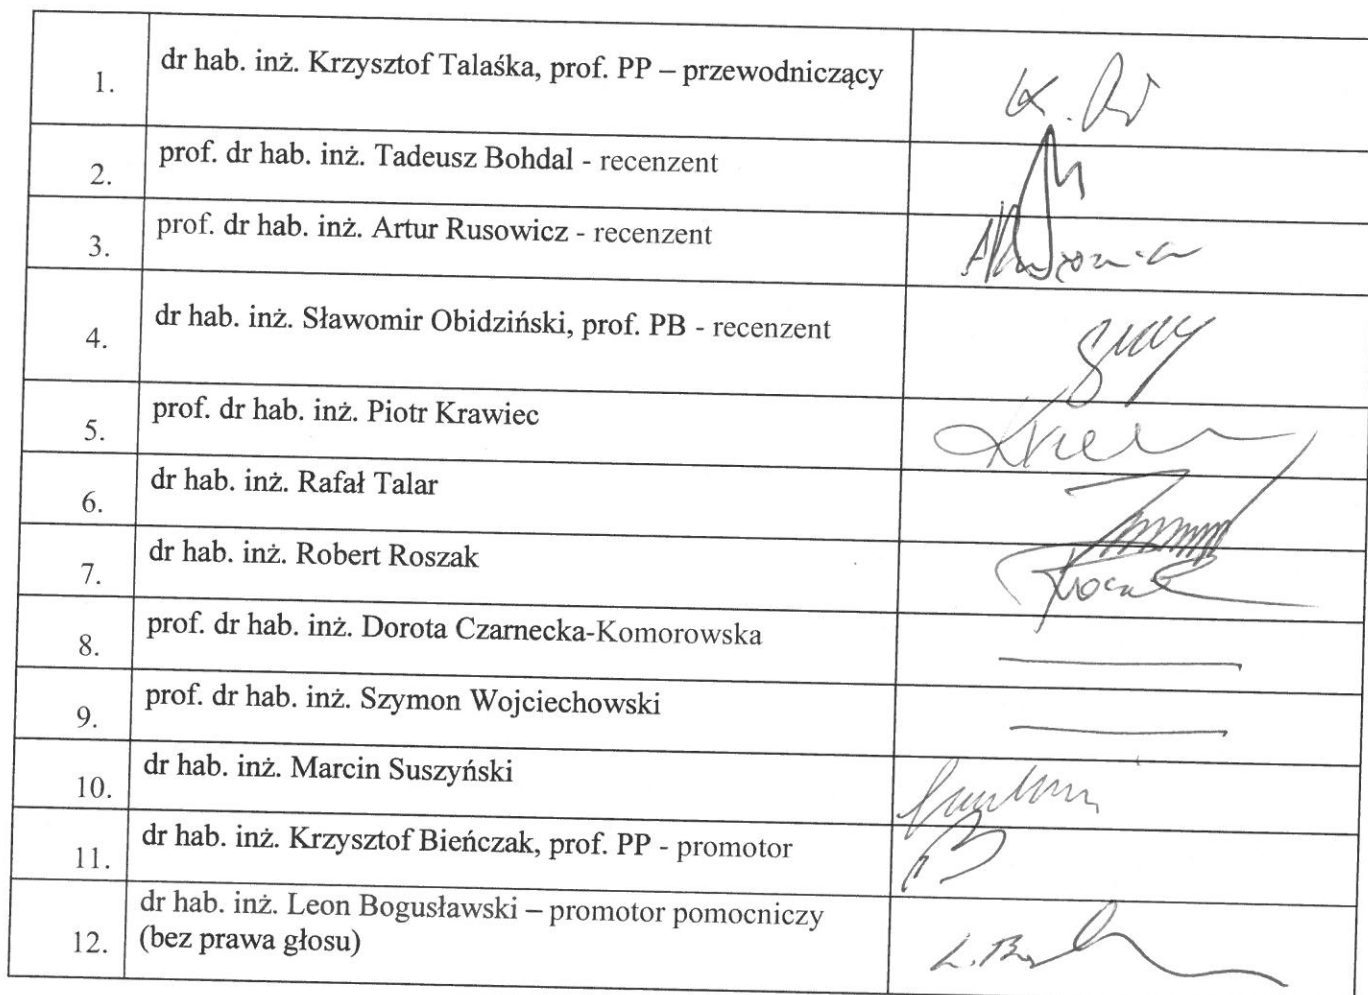 1. dr hab. inż. Krzysztof Talaśka, prof. PP – przewodniczący
2. prof. dr hab. inż. Tadeusz Bohdal - recenzent
3. prof. dr hab. inż. Artur Rusowicz - recenzent
4. dr hab. inż. Sławomir Obidziński, prof. PB - recenzent
5. prof. dr hab. inż. Piotr Krawiec
6. dr hab. inż. Rafał Talar
7. dr hab. inż. Robert Roszak
8. prof. dr hab. inż. Dorota Czarnecka-Komorowska
9. prof. dr hab. inż. Szymon Wojciechowski
10. dr hab. inż. Marcin Suszyński
11. dr hab. inż. Krzysztof Bieńczak, prof. PP - promotor
12. dr hab. inż. Leon Bogusławski – promotor pomocniczy
(bez prawa głosu)